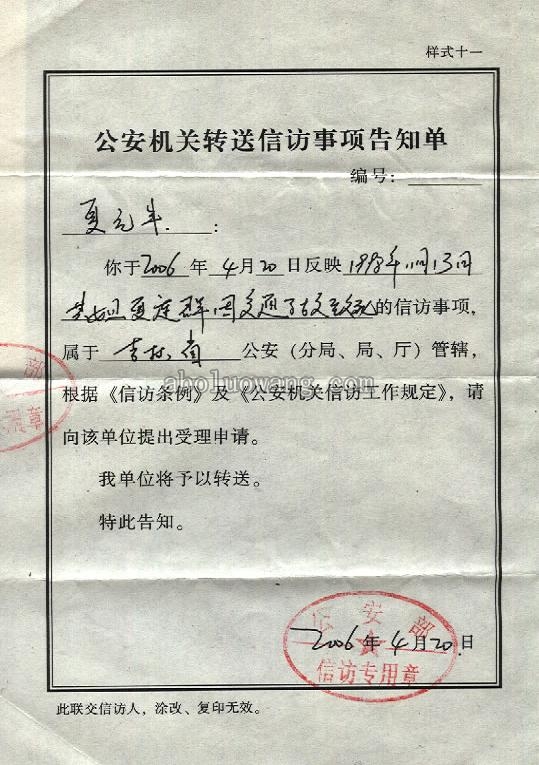 样式十一
公安机关转送信访事项告知单
编号：
夏元丰：
你于2006年4月20日反映1998年11月13日
夏廷群因交通事故致死的信访事项，
属于吉林省公安（分局、局、厅）管辖，
aboluowang.com
根据《信访条例》及《公安机关信访工作规定》，请
向该单位提出受理申请。
我单位将予以转送。
特此告知。
公安部
2006年4月20日
信访专用章
此联交信访人，涂改、复印无效。